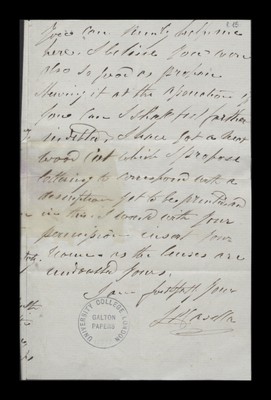 you can kindly help me
here. I believe you were
also so good as propose
shewing it at the
you can I shall feel further
indebted. I have got a neat
wood cut which I propose
to correspond with a
description yet to be
in this I would with your
permission insert your
name as the lenses are
undoubtedly yours.
I am faithfully yours
L Casella
UNIVERSITY COLLEGE LONDON
GALTON
PAPERS